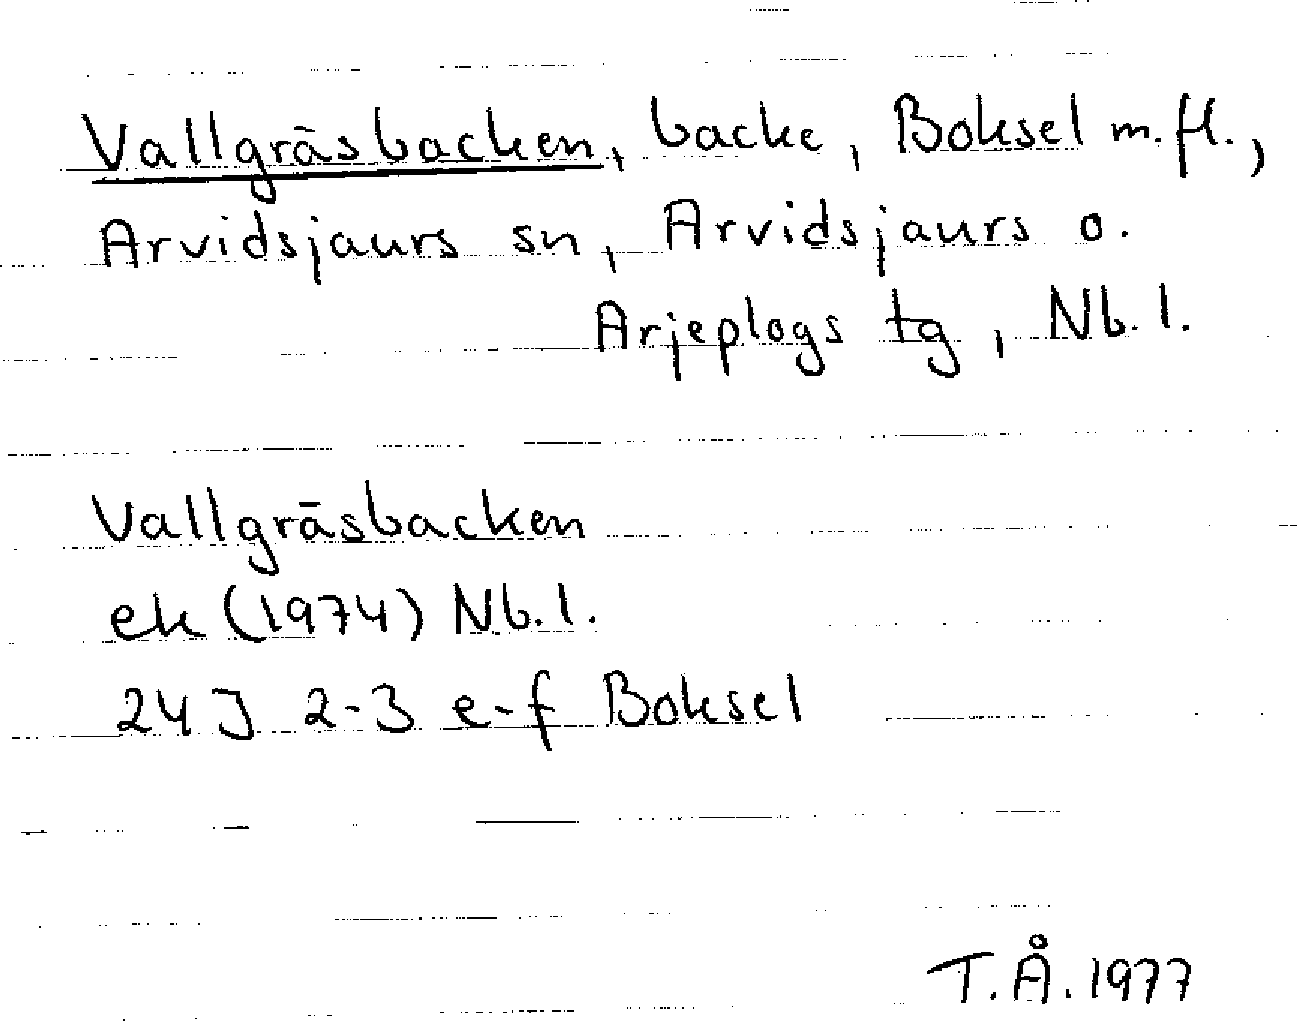 Vallgräsbacken, backe, Boksel m.fl.,
Arvidsjaurs sn, Arvidsjaurs o.
Arjeplogs tg, Nb.l.
Vallgräsbacken
ek (1974) Nb.l.
24J 2-3 e-f Boksel
T.Å.1977